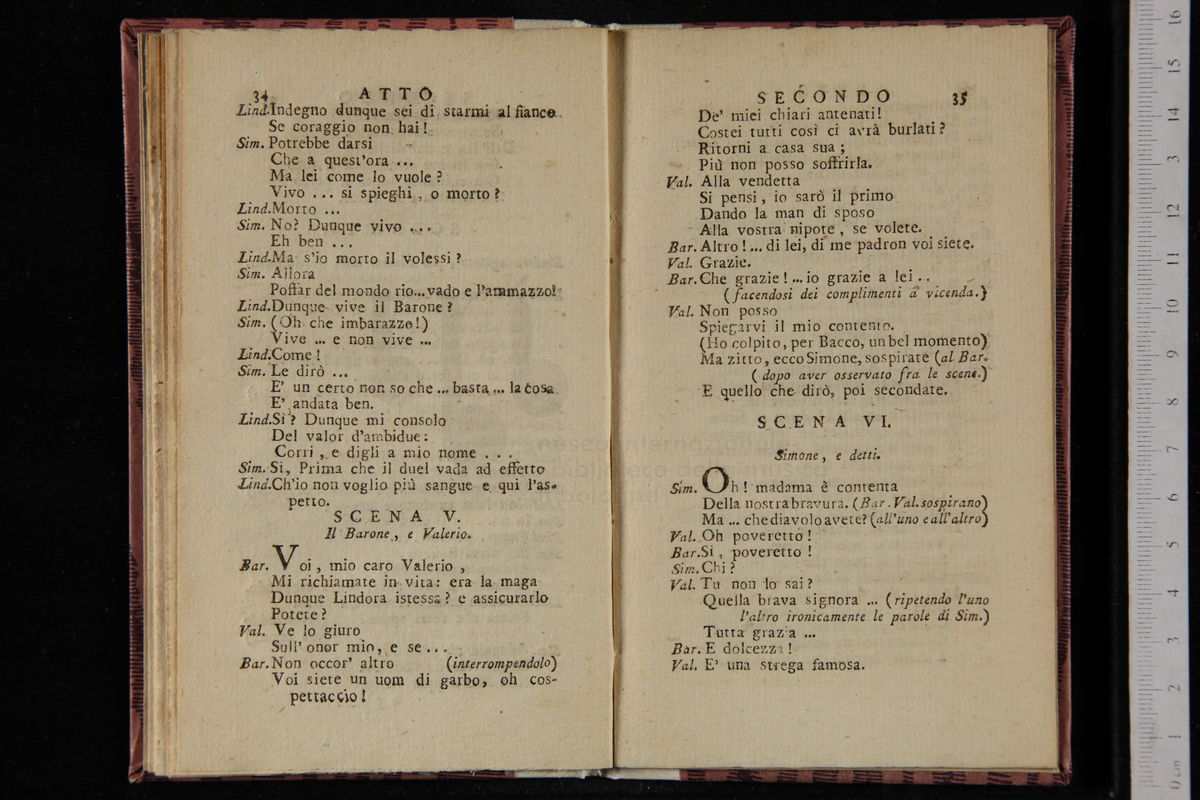 34 ATTO
Lind.Indegno dunque sei di starmi al fianco
Se coraggio non hai!
Sim. Potrebbe darsi
Che a quest'ora ...
Ma lei come lo vuole?
Vivo ... si spieghi, o morto?
Lind.Morto ...
Sim. No? Dunque vivo ...
Eh ben ...
Lind.Ma s'io morto il volessi?
Sim. Allora
Poffar del mondo rio...vado e l'ammazzo!
Lind.Dunque vive il Barone?
Sim. (Oh che imbarazzo!)
Vive ... e non vive ...
Lind.Come!
Sim. Le dirò ...
E' un certo non so che ... basta ... la cosa
E' andata ben.
Lind.Sì? Dunque mi consolo
Del valor d'ambidue:
Corri, e digli a mio nome . . .
Sim. Sì, Prima che il duel vada ad effetto
Lind.Ch'io non voglio più sangue e qui l'as-
petto.
SCENA V.
Il Barone, e Valerio.
Bar. Voi, mio caro Valerio,
Mi richiamate in vita: era la maga
Dunque Lindora istessa? e assicurarlo
Potete?
Val. Ve lo giuro
Sull' onor mio, e se ...
Bar.Non occor' altro (interrompendolo)
Voi siete un uom di garbo, oh cos-
pettaccio!
SECONDO 35
De' miei chiari antenati!
Costei tutti così ci avrà burlati?
Ritorni a casa sua;
Più non posso soffrirla.
Val. Alla vendetta
Si pensi, io sarò il primo
Dando la man di sposo
Alla vostra nipote, se volete.
Bar. Altro!... di lei, di me padron voi siete.
Val. Grazie.
Bar.Che grazie!...io grazie a lei ..
(facendosi dei complimenti a vicenda.)
Val. Non posso
Spiegarvi il mio contento.
(Ho colpito, per Bacco, un bel momento)
Ma zitto, ecco Simone, sospirate (al Bar.
(dopo aver osservato fra le scene.)
E quello che dirò, poi secondate.
SCENA VI.
Simone, e detti.
Sim. Oh! madama è contenta
Della nostra bravura. (Bar. Val. sospirano)
Ma ... che diavolo avete? (all'uno e all'altro)
Val. Oh poveretto!
Bar.Sì, poveretto!
Sim. Chi?
Val. Tu non lo sai?
Quella brava signora ... (ripetendo l'uno
l'altro ironicamente le parole di Sim.)
Tutta grazia ...
Bar. E dolcezza!
Val. E' una strega famosa.